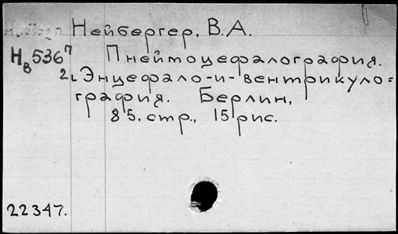 Нейбергер, В.А.
Нв536⁷ Пнеймоцефалография.
2. Энцефало-и-вентрикуло=
графия. Берлин,
85. стр., 15 рис.
22347.